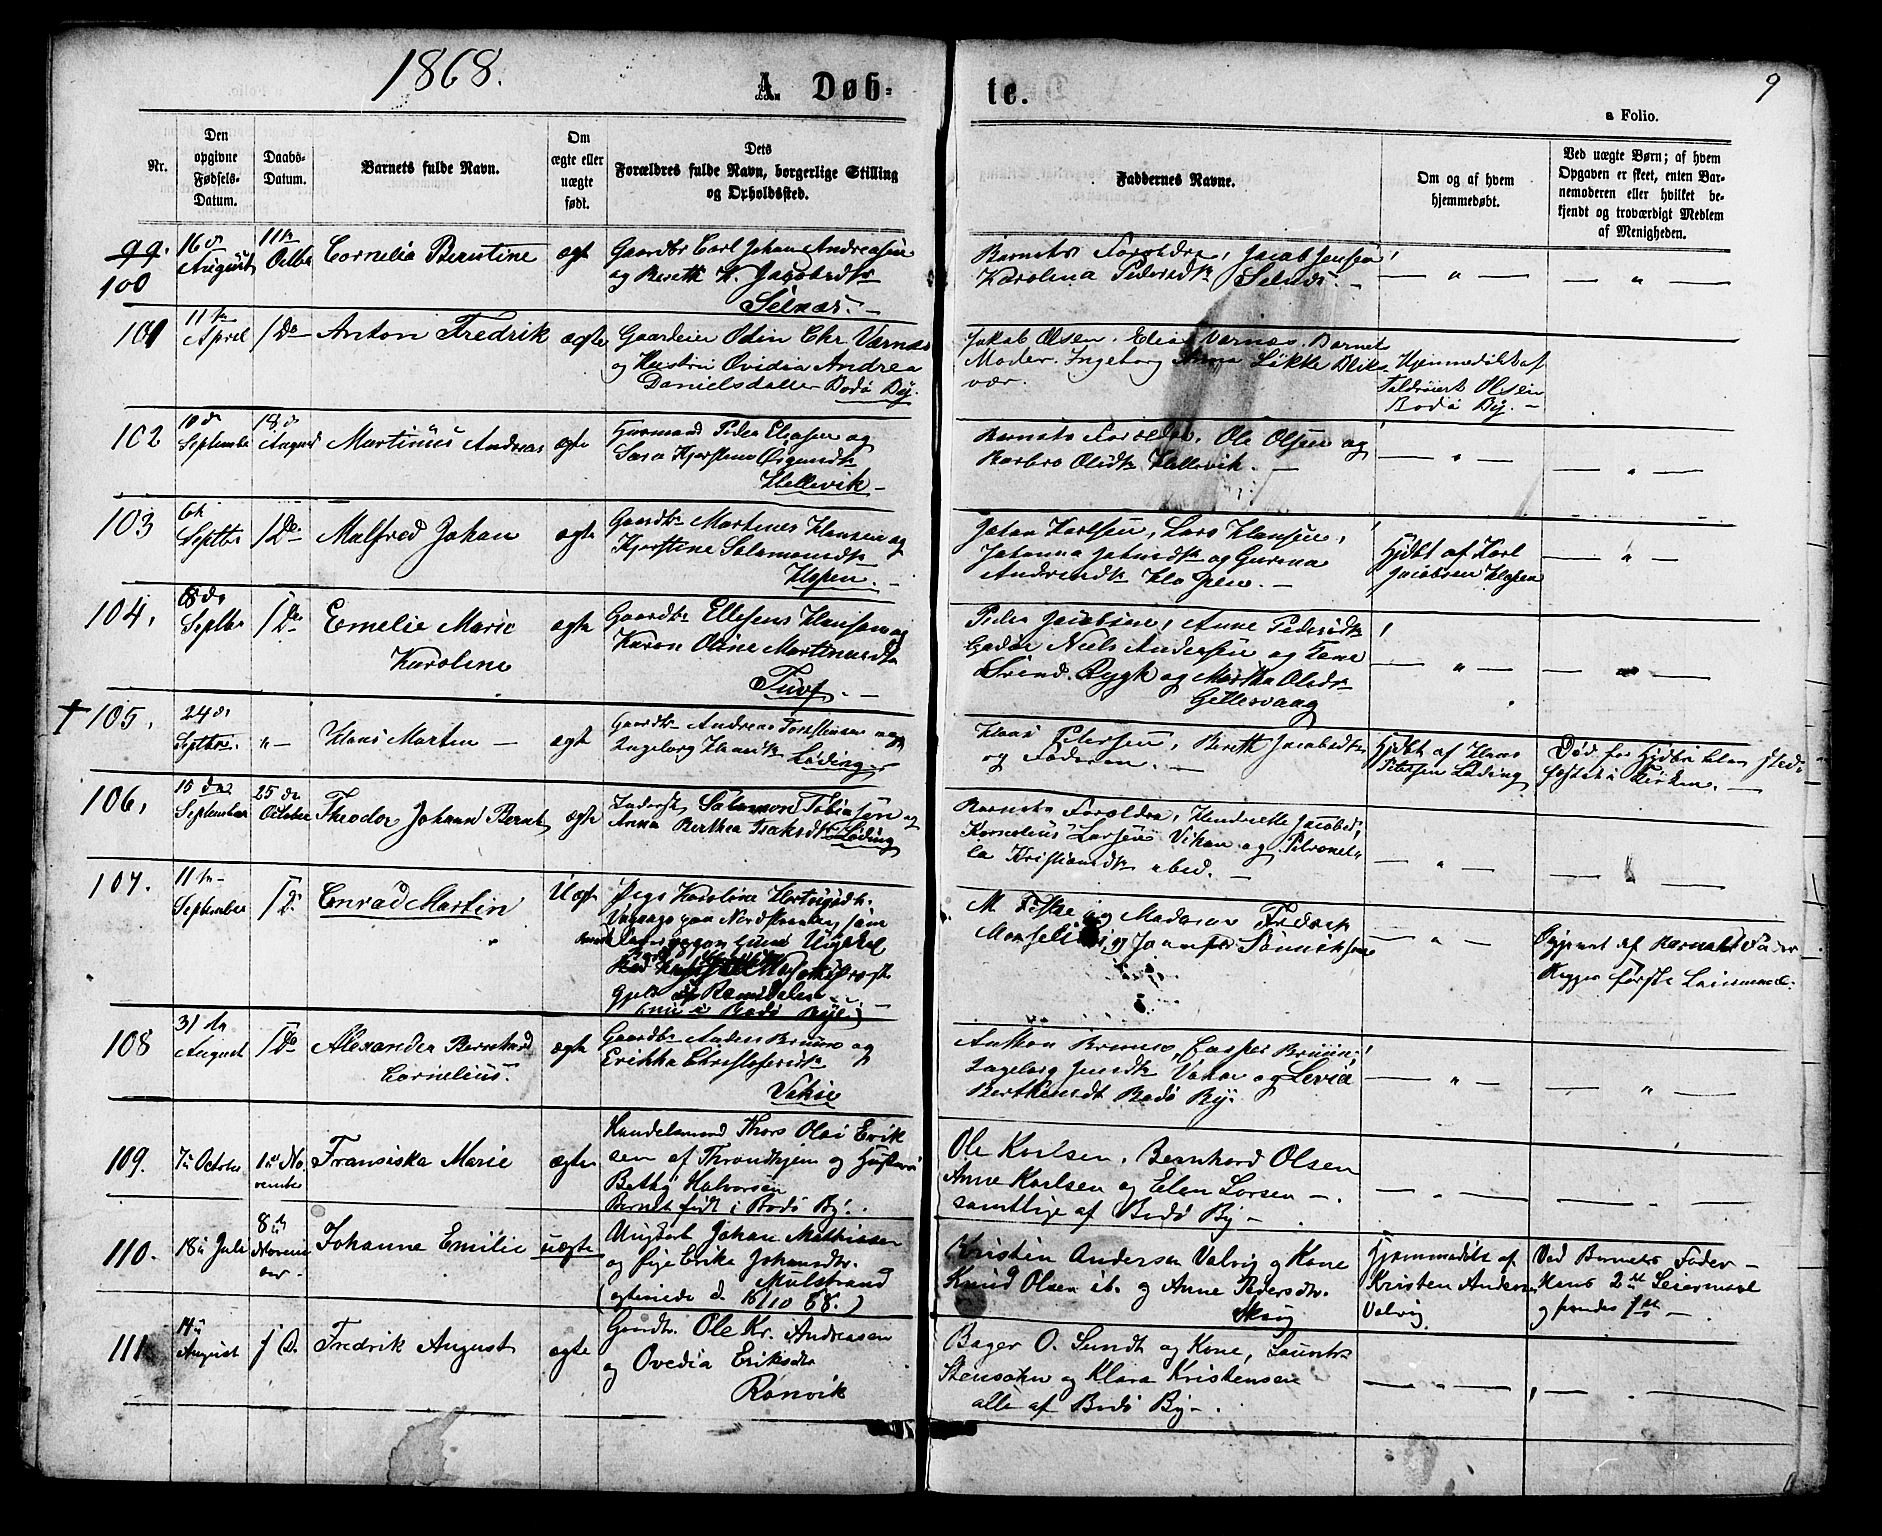 1868.
A. Døb-
te.
9
a Folio.
Nr.
Den
opgivne
Fødsels-
Datum.
Daabs-
Datum.
Barnets fulde Navn.
Om
ægte eller
uægte
født.
Dets
Forældres fulde Navn, borgerlige Stilling
og Opholdssted.
Faddernes Navne.
Om og af hvem
hjemmedøbt.
Ved uægte Børn; af hvem
Opgaven er skeet, enten Bar-
nemoderen eller hvilket be-
kjendt og troværdigt Medlem
af Menigheden.
99.
100
16de
August
11te
Octbr
Cornelia Berntine
ægt
Gaardbr Carl Johan Andreasen
og Berett K. Jacobsdtr
Selnæs. -
Barnets Forældre, Jacob Jensen
Karolina Pedersdtr Selnæs. -
— " —
— " —
101
11te
April
/ Do
Anton Fredrik
ægte
Gaardeier Odin Chr Værnæs
og Hustru Ovidia Andrea
Danielsdatter Bodø By.
Jakob Olsen. Elias Værnæs. Barnets
Moder. Ingeborg Anna Løkke Blix
vær.
Hjemmedøbt af
Toldroier Olsen
Bodø By. -
102
10de
September
18de
August
Martinus Andreas
ægte
Huusmand Peder Eliasen og
Sara Kjerstena
Hellevik -
Barnets Forældre, Ole Olsen og
Barbro Olsdtr Hellevik. -
— " —
— " —
103
6te
Septbr
/ Do
Malfred Johan
ægte
Gaardbr Martines Hansen og
Kjerstine Salamonsdtr
Hopen. -
Johan Karlsen, Lars Hansen,
Johanna Johnsdtr og Gurina
Andreasdtr Hopen. -
Hjdbt af Karl
Jacobsen Hopen
— " —
104.
8de
Septbr
/ Do
Emelie Marie
Karoline
ægte
Gaardbr Ellesens Hansen og
Karen Oline Martinusdtr
Tuv. -
Peder Jacobsen, Anne Pedersdtr
Godøe Niels Andersen og Kone
Svend Rygh og Martha Olsdtr
Gellesvaag
— " —
— " —
† 105.
24de
Septbr.
" -
Hans Martin -
ægte
Gaardbr Andreas Torstensen og
Ingeborg Hansdtr
Løding
Hans Petersen, Berett Jacobsdtr
og Faderen. -
Hjdbt af Hans
Petersen Løding
Død før
i Kirken. -
106.
15de
September
25de
October
Theodor Johann Bernt
ægte
Inderst Salamon Tobiasen og
Anna Berthea Isaksdtr Løding
Barnets Forældre, Hendrikke Jacobsd,
Kornelius Larsen Vikan og Petronel-
la Kristiansdtr ibid. -
— " —
— " —
107.
11te
September
/ Do
Conrad Martin
Uægt
Pige Karoline
Gjeld i Romsdalen -
M. Fiske og Madam Fredrik
— " —
Opgivet af Barnets Fader
Begges første Leiermaal.
108
31te
August
/ Do
Alexander Bernhard
Cornelius.
ægte
Gaardbr Anders Bruun og
Erikka Christofersdtr
Anthon Bruun, Casper Bruun,
Ingeborg Jensdtr og Levia
Berthensdt Bodø By.
— " —
— " —
109.
7de Octobr
1ste No-
vember
Fransiska Marie
ægte
Handelsmand Thors Olai Erik
sen af Throndhjem og Hustru
Bethy Halvorsen
Barnet født i Bodø By.
Ole Karlsen, Bernhard Olsen
Anne Karlsen og Elen Larsen -.
samtlige af Bodø By -
— " —
— —
110.
18de Juli
8de
Novem
ber -
Johanne Emilie
uægte
Ungkarl Johan Mathisen
og Pige Erika Johansdtr.
Mulstrand
(gtviede d. 15/10 68.)
Kristen Andersen Valvig og Kone
Knud Olsen ib. og Anne Pedersdtr.
Skoug
Hjemmedøbt af
Kristen Andersen
Valvig.
Ved Barnets Fader -
Hans 2det Leiermaal
og hendes 1ste -
111
14de
August
/ D.
Fredrik August
ægte
Gaardbr. Ole Kr. Andreasen
og Ovedia Eriksdtr
Rønvik
Bager O. Sundt og Kone, Lauritz
Stensohn og Klara Kristensen
alle af Bodø By -.
— " —
— —